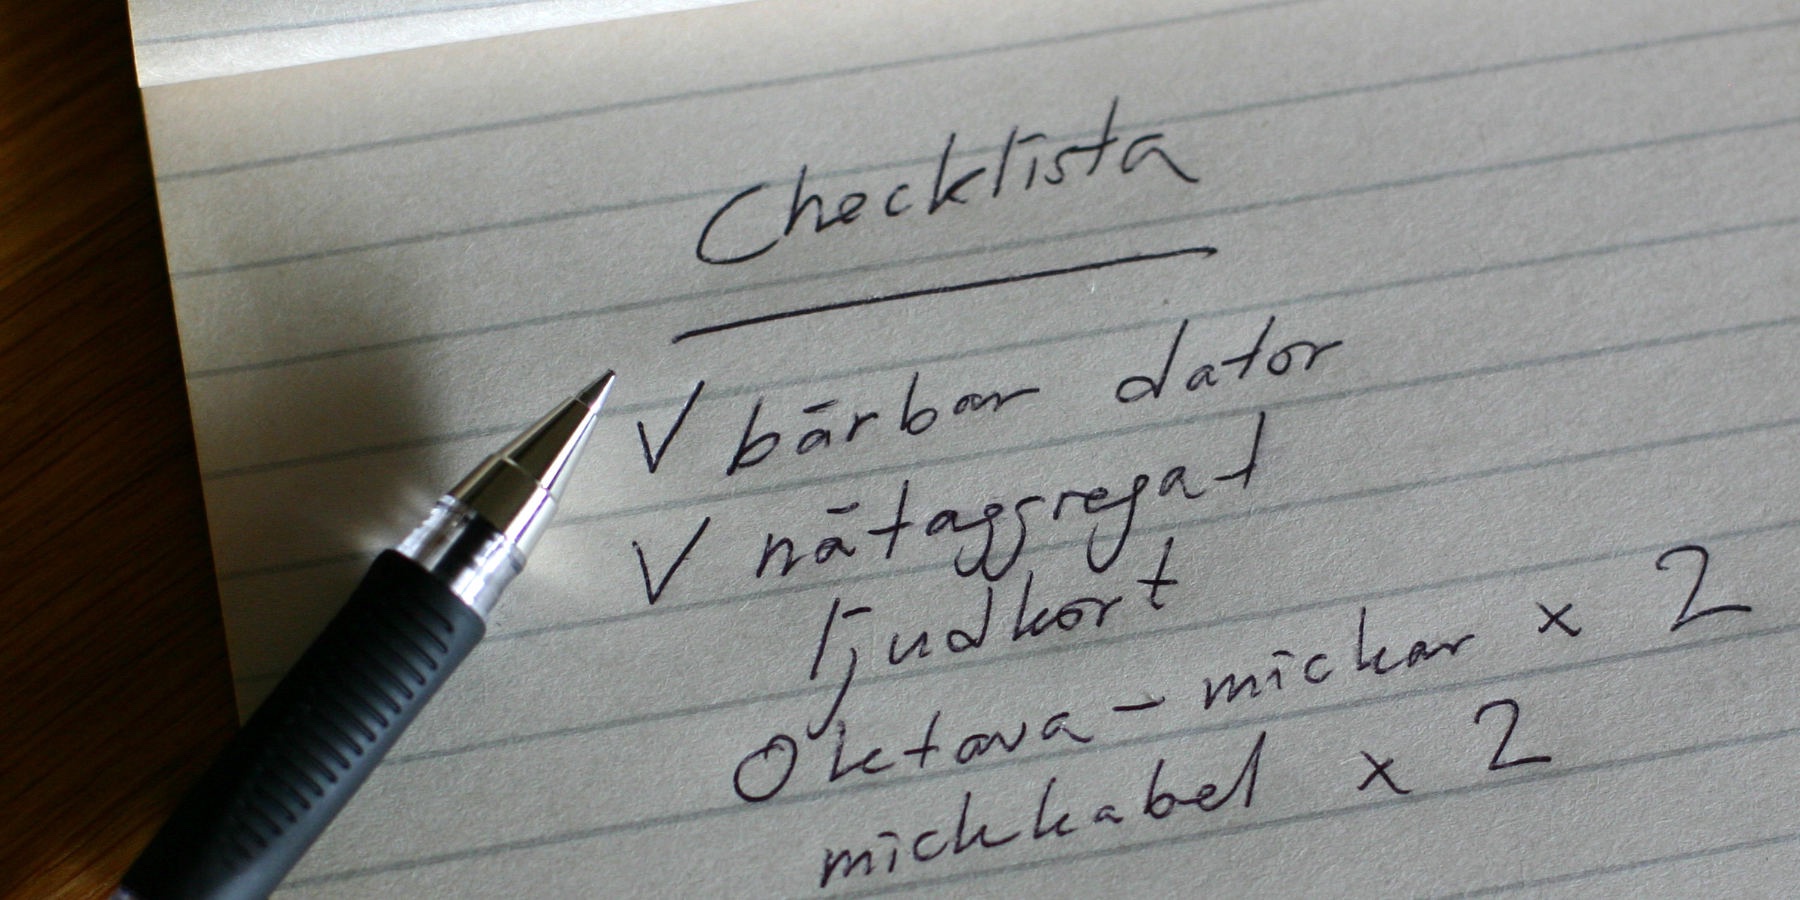 Checklista
✓ bärbar dator
✓ nätaggregat
ljudkort
Oktava-mickar x 2
mickkabel x 2